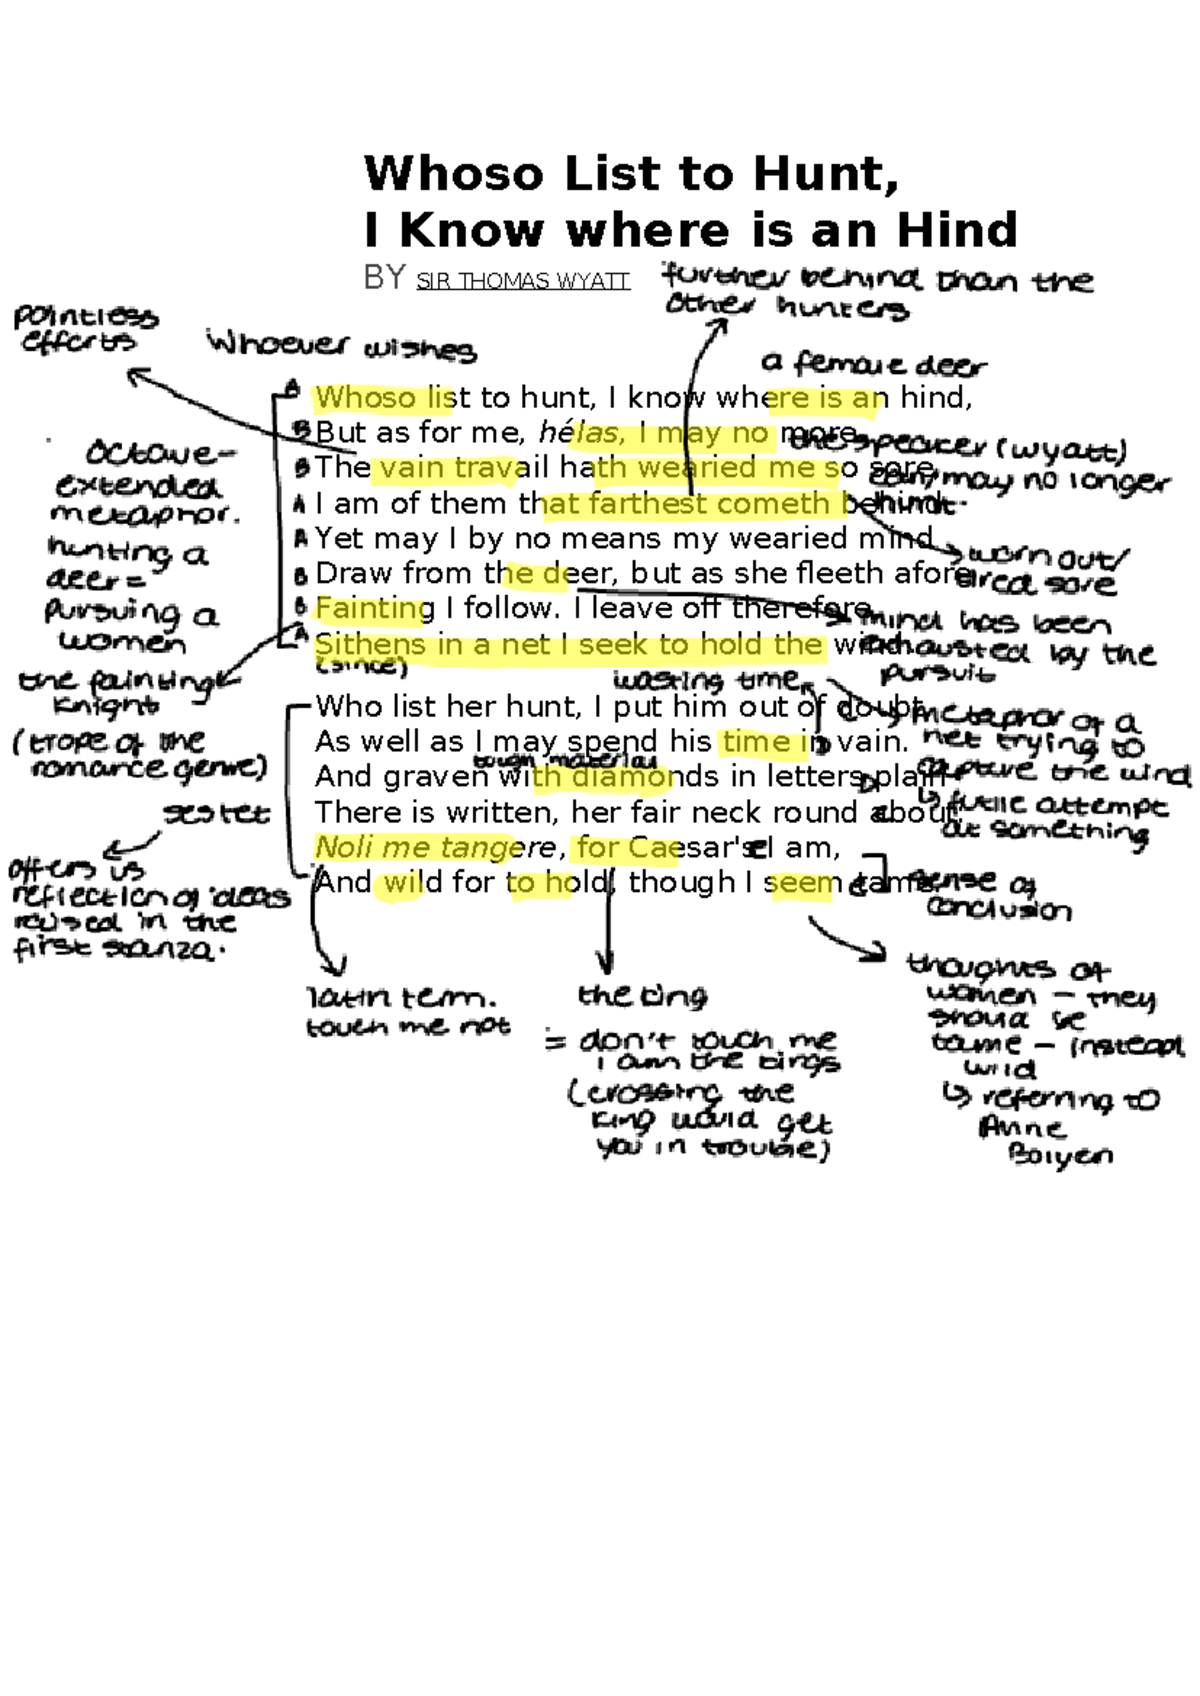 Whoso List to Hunt,
I Know where is an Hind
BY SIR THOMAS WYATT
further behind than the
other hunters
pointless
efforts
Whoever wishes
a female deer
A Whoso list to hunt, I know where is an hind,
B But as for me, hélas, I may no more.
the speaker (wyatt)
can/may no longer
hunt.
B The vain travail hath wearied me so sore,
A I am of them that farthest cometh behind.
A Yet may I by no means my wearied mind
B Draw from the deer, but as she fleeth afore
B Fainting I follow. I leave off therefore,
A Sithens in a net I seek to hold the wind.
(since)
octave-
extended
metaphor.
hunting a
deer =
pursuing a
women
worn out/
tired sore
mind has been
exhausted by the
pursuit
the fainting
knight
(trope of the
romance genre)
wasting time
Who list her hunt, I put him out of doubt,
As well as I may spend his time in vain.
tough material
And graven with diamonds in letters plain
There is written, her fair neck round about:
Noli me tangere, for Caesar's I am,
And wild for to hold, though I seem tame.
metaphor of a
net trying to
capture the wind
↳ futile attempt
at something
sestet
offers us
reflection of ideas
raised in the
first stanza.
sense of
conclusion
latin term.
touch me not
the king
= don't touch me
I am the kings
(crossing the
king would get
you in trouble)
thoughts of
women – they
should be
tame – instead
wild
↳ referring to
Anne
Boleyn